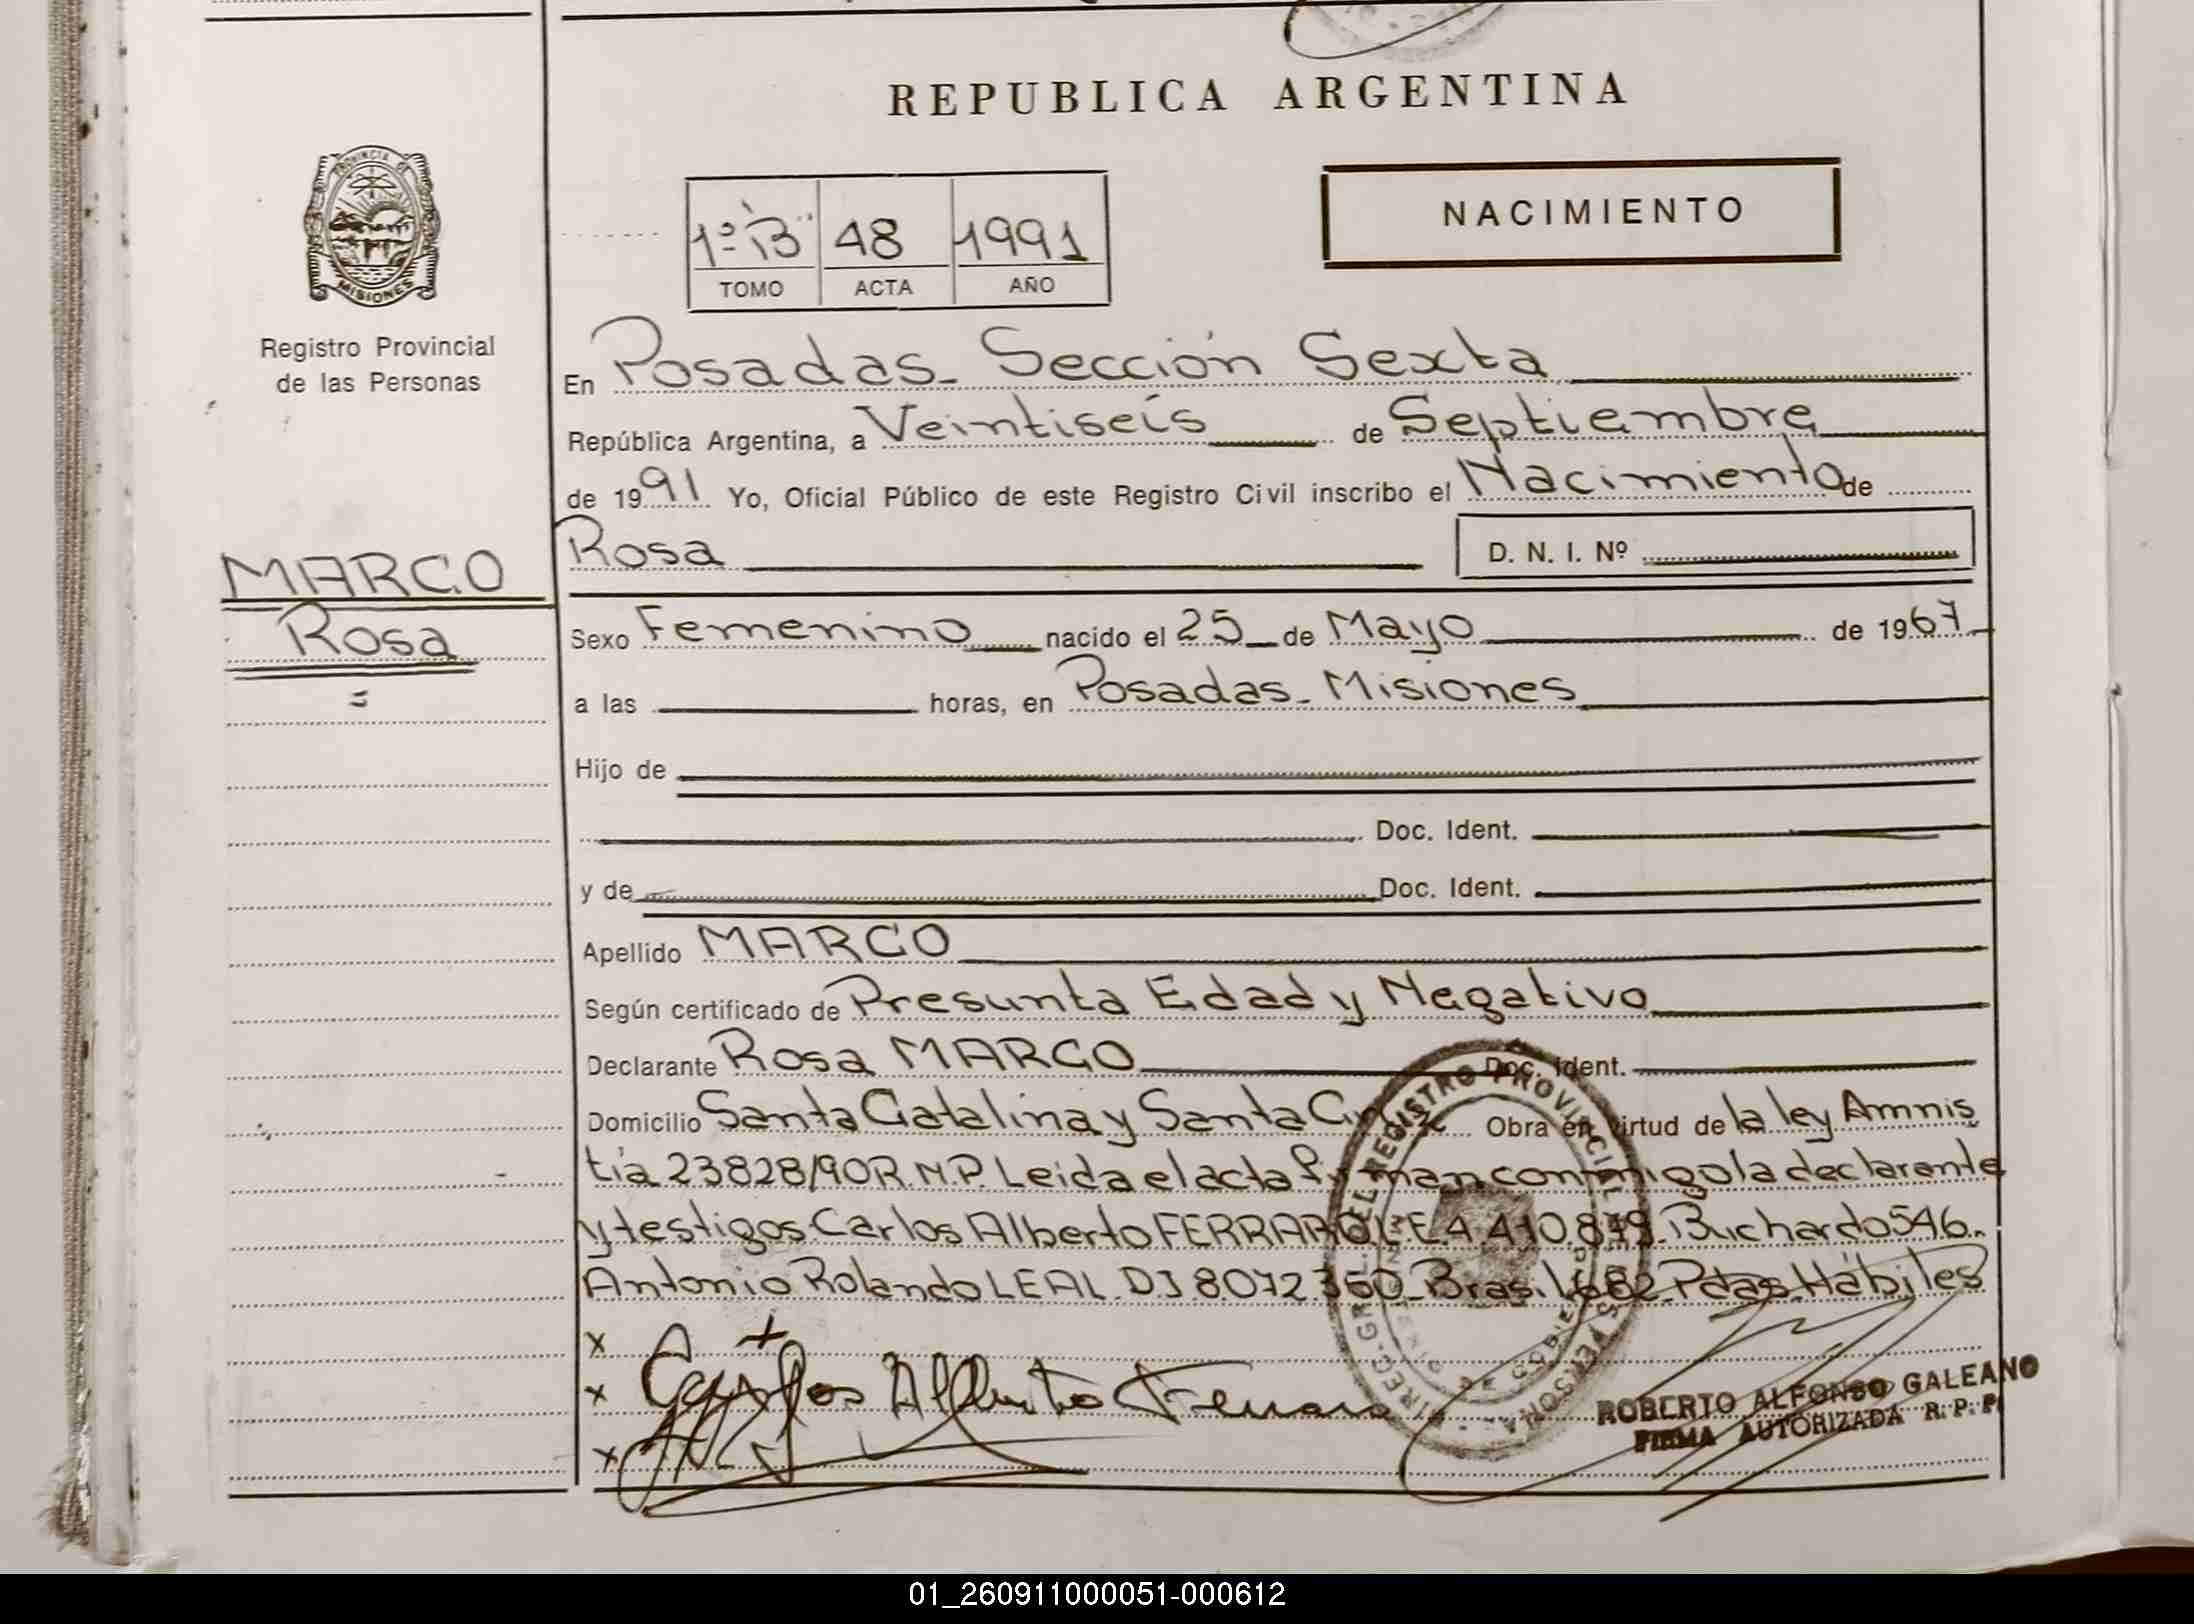 REPUBLICA ARGENTINA
PROVINCIA DE
MISIONES
Registro Provincial
de las Personas
1º "B" 48 1991
TOMO ACTA AÑO
NACIMIENTO
En Posadas - Sección Sexta
República Argentina, a Veintiseis de Septiembre
de 1991 Yo, Oficial Público de este Registro Civil inscribo el Nacimiento de
MARCO
Rosa
Rosa D. N. I. Nº
Sexo Femenino nacido el 25 de Mayo de 1967
a las horas, en Posadas - Misiones
Hijo de
Doc. Ident.
y de Doc. Ident.
Apellido MARCO
Según certificado de Presunta Edad y Negativo
Declarante Rosa MARCO Doc. Ident.
Domicilio Santa Catalina y Santa Obra en virtud de la ley Amnis
tía 23828/90 R.N.P. Leida el acta firman conmigo la declarante
y testigos Carlos Alberto FERRARO L.E. 4.410.879. Buchardo 546.
Antonio Rolando LEAL D.I 8.072.360 - Brasil 682 - Pdas. Hábiles
x
x Carlos Alberto Ferraro
x
ROBERTO ALFONSO GALEANO
FIRMA AUTORIZADA R. P. P.
01_260911000051-000612